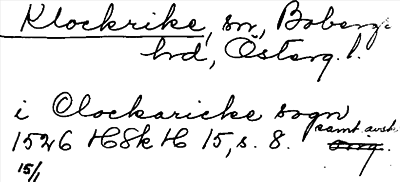 Klockrike, sn, Bobergs
hd, Österg.l.
i Clockaricke sogn
1526 HSkH 15, s. 8. samt. avskr.
15/1